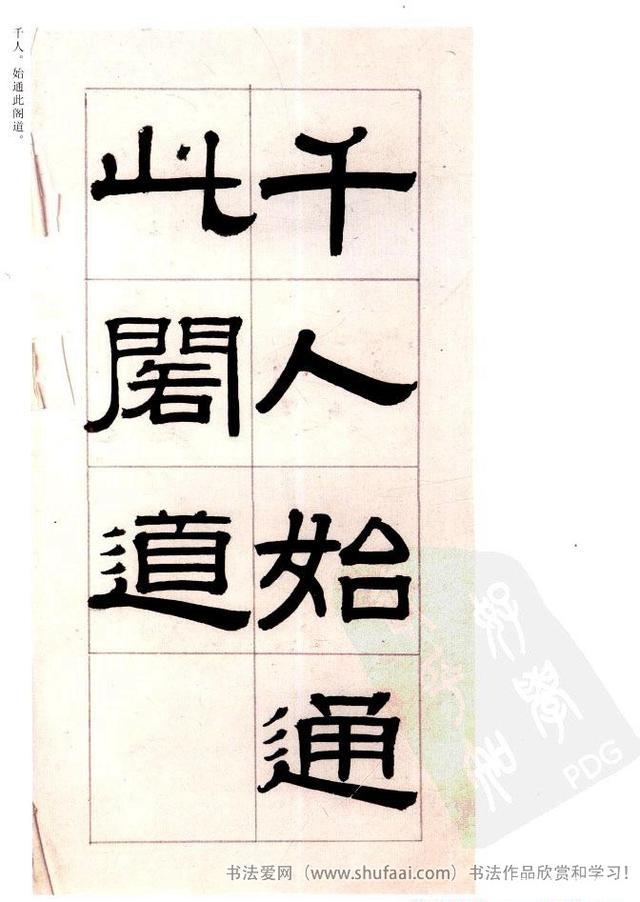 千人始通
此閣道
千人。始通此阁道。
PDG
书法爱网（www.shufaai.com）书法作品欣赏和学习！